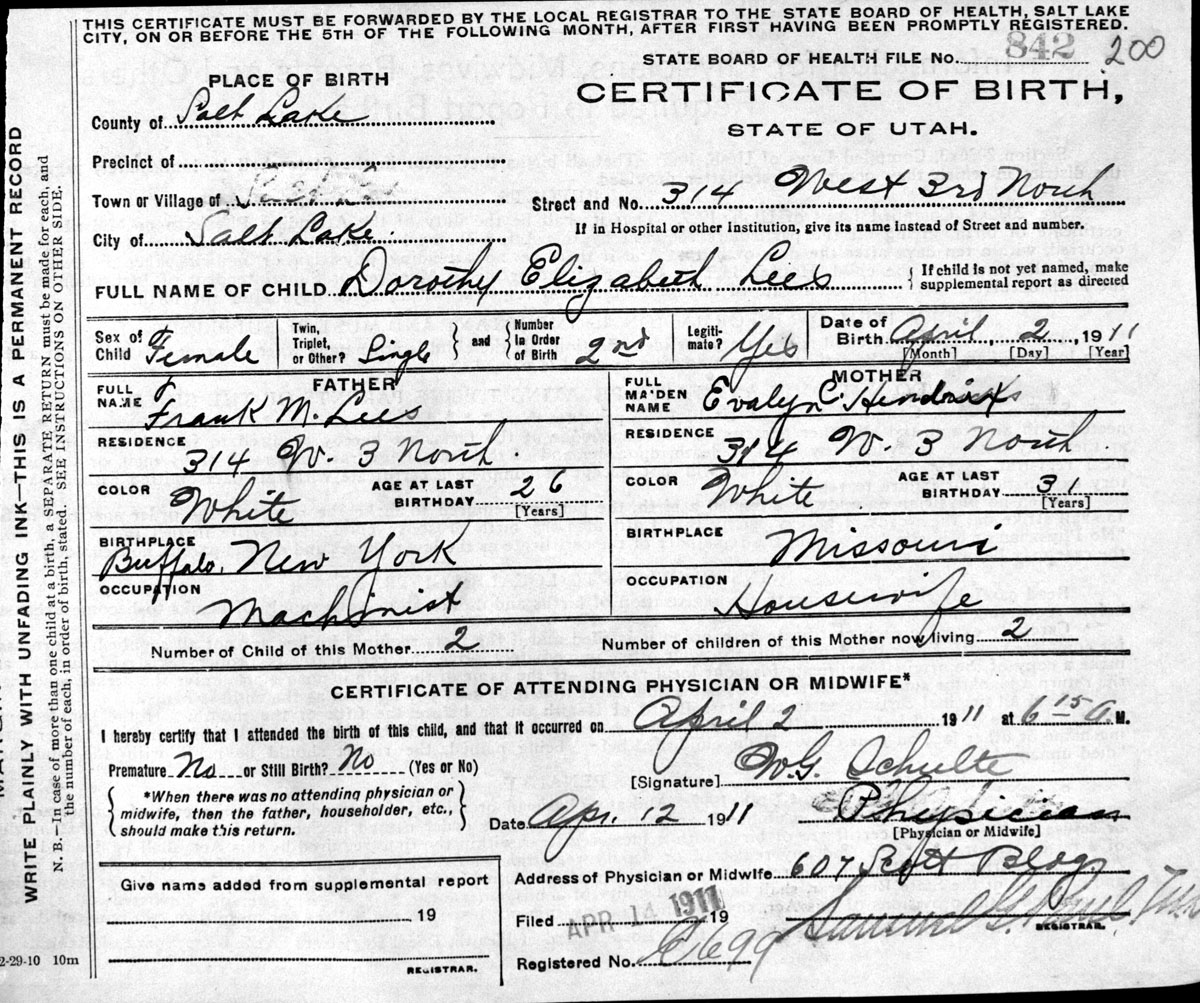 THIS CERTIFICATE MUST BE FORWARDED BY THE LOCAL REGISTRAR TO THE STATE BOARD OF HEALTH, SALT LAKE
CITY, ON OR BEFORE THE 5TH OF THE FOLLOWING MONTH, AFTER FIRST HAVING BEEN PROMPTLY REGISTERED.
STATE BOARD OF HEALTH FILE No. 842 200
PLACE OF BIRTH
CERTIFICATE OF BIRTH,
STATE OF UTAH.
County of Salt Lake
Precinct of
Town or Village of
Street and No. 314 West 3rd North
City of Salt Lake.
If in Hospital or other Institution, give its name instead of Street and number.
FULL NAME OF CHILD Dorothy Elizabeth Lees
{ If child is not yet named, make
supplemental report as directed
Sex of Child Female
Twin, Triplet, or Other? Single
} and { Number in Order of Birth 2nd
Legiti-mate? Yes
Date of Birth April, 2, 1911
[Month] [Day] [Year]
FATHER
FULL NAME Frank M. Lees
MOTHER
FULL MAIDEN NAME Evalyn C. Hendricks
RESIDENCE 314 W. 3 North.
RESIDENCE 314 W. 3 North.
COLOR White
AGE AT LAST BIRTHDAY 26
[Years]
COLOR White
AGE AT LAST BIRTHDAY 31
[Years]
BIRTHPLACE Buffalo, New York
BIRTHPLACE Missouri
OCCUPATION Machinist
OCCUPATION Housewife
Number of Child of this Mother 2
Number of children of this Mother now living 2
CERTIFICATE OF ATTENDING PHYSICIAN OR MIDWIFE*
I hereby certify that I attended the birth of this child, and that it occurred on April 2 1911 at 6 15 A. M.
Premature No or Still Birth? No (Yes or No)
[Signature] W.G. Schulte
{ *When there was no attending physician or
midwife, then the father, householder, etc.,
should make this return. }
Date Apr. 12 1911
Physician
[Physician or Midwife]
Address of Physician or Midwife 607 Scott Bldg
Give name added from supplemental report
19
REGISTRAR.
Filed APR 14 1911 19
Samuel G. Paul
REGISTRAR.
Registered No. 699
2-29-10 10m
WRITE PLAINLY WITH UNFADING INK—THIS IS A PERMANENT RECORD
N. B.—In case of more than one child at a birth, a SEPARATE RETURN must be made for each, and
the number of each, in order of birth, stated. SEE INSTRUCTIONS ON OTHER SIDE.